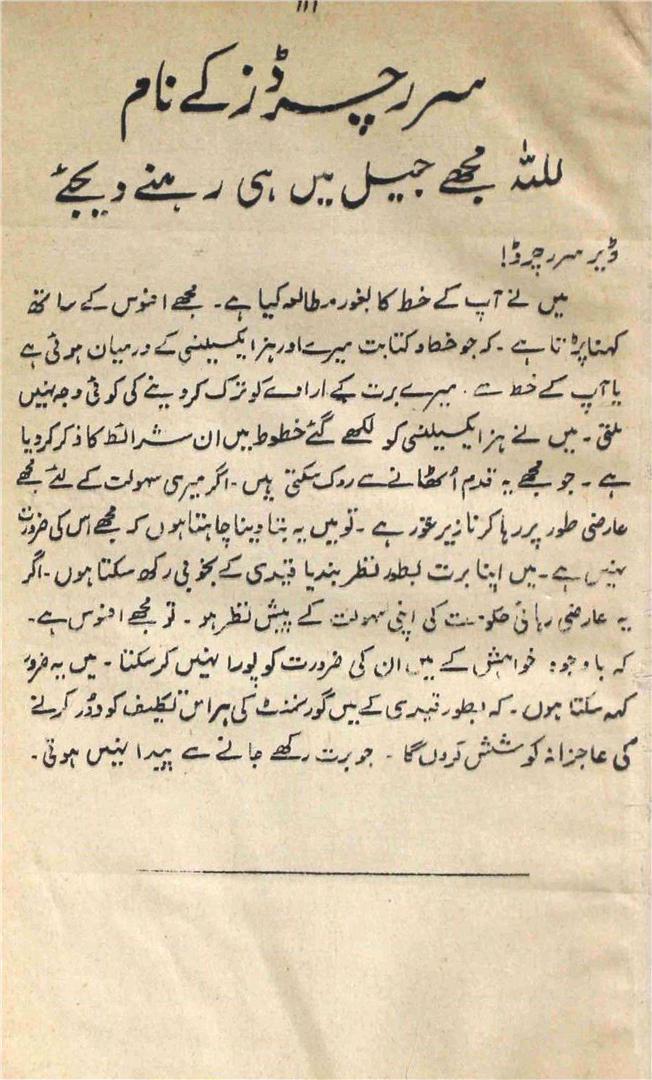 ۱۱۱
سر رچرڈز کے نام
للّٰلہ مجھے جیل میں ہی رہنے دیجئے
ڈیر سر رچرڈ!
میں نے آپ کے خط کا بغور مطالعہ کیا ہے۔ مجھے افسوس کے ساتھ
کہنا پڑتا ہے۔ کہ جو خط و کتابت میرے اور ہز ایکسیلنسی کے درمیان ہوئی ہے
یا آپ کے خط سے۔ میرے برت کے ارادے کو ترک کر دینے کی کوئی وجہ نہیں
ملتی۔ میں نے ہز ایکسیلنسی کو لکھے گئے خطوط میں ان شرائط کا ذکر کر دیا
ہے۔ جو مجھے یہ قدم اُٹھانے سے روک سکتی ہیں۔ اگر میری سہولت کے لئے مجھے
عارضی طور پر رہا کرنا زیر غور ہے۔ تو میں یہ بتا دینا چاہتا ہوں کہ مجھے اس کی ضرورت
نہیں ہے۔ میں اپنا برت بطور نظر بند یا قیدی کے بخوبی رکھ سکتا ہوں۔ اگر
یہ عارضی رہائی حکومت کی اپنی سہولت کے پیش نظر ہو۔ تو مجھے افسوس ہے۔
کہ باوجود خواہش کے میں ان کی ضرورت کو پورا نہیں کر سکتا۔ میں یہ ضرور
کہہ سکتا ہوں۔ کہ بطور قیدی کے میں گورنمنٹ کی ہر اس تکلیف کو دُور کرنے
کی عاجزانہ کوشش کروں گا۔ جو برت رکھے جانے سے پیدا نہیں ہوتی۔